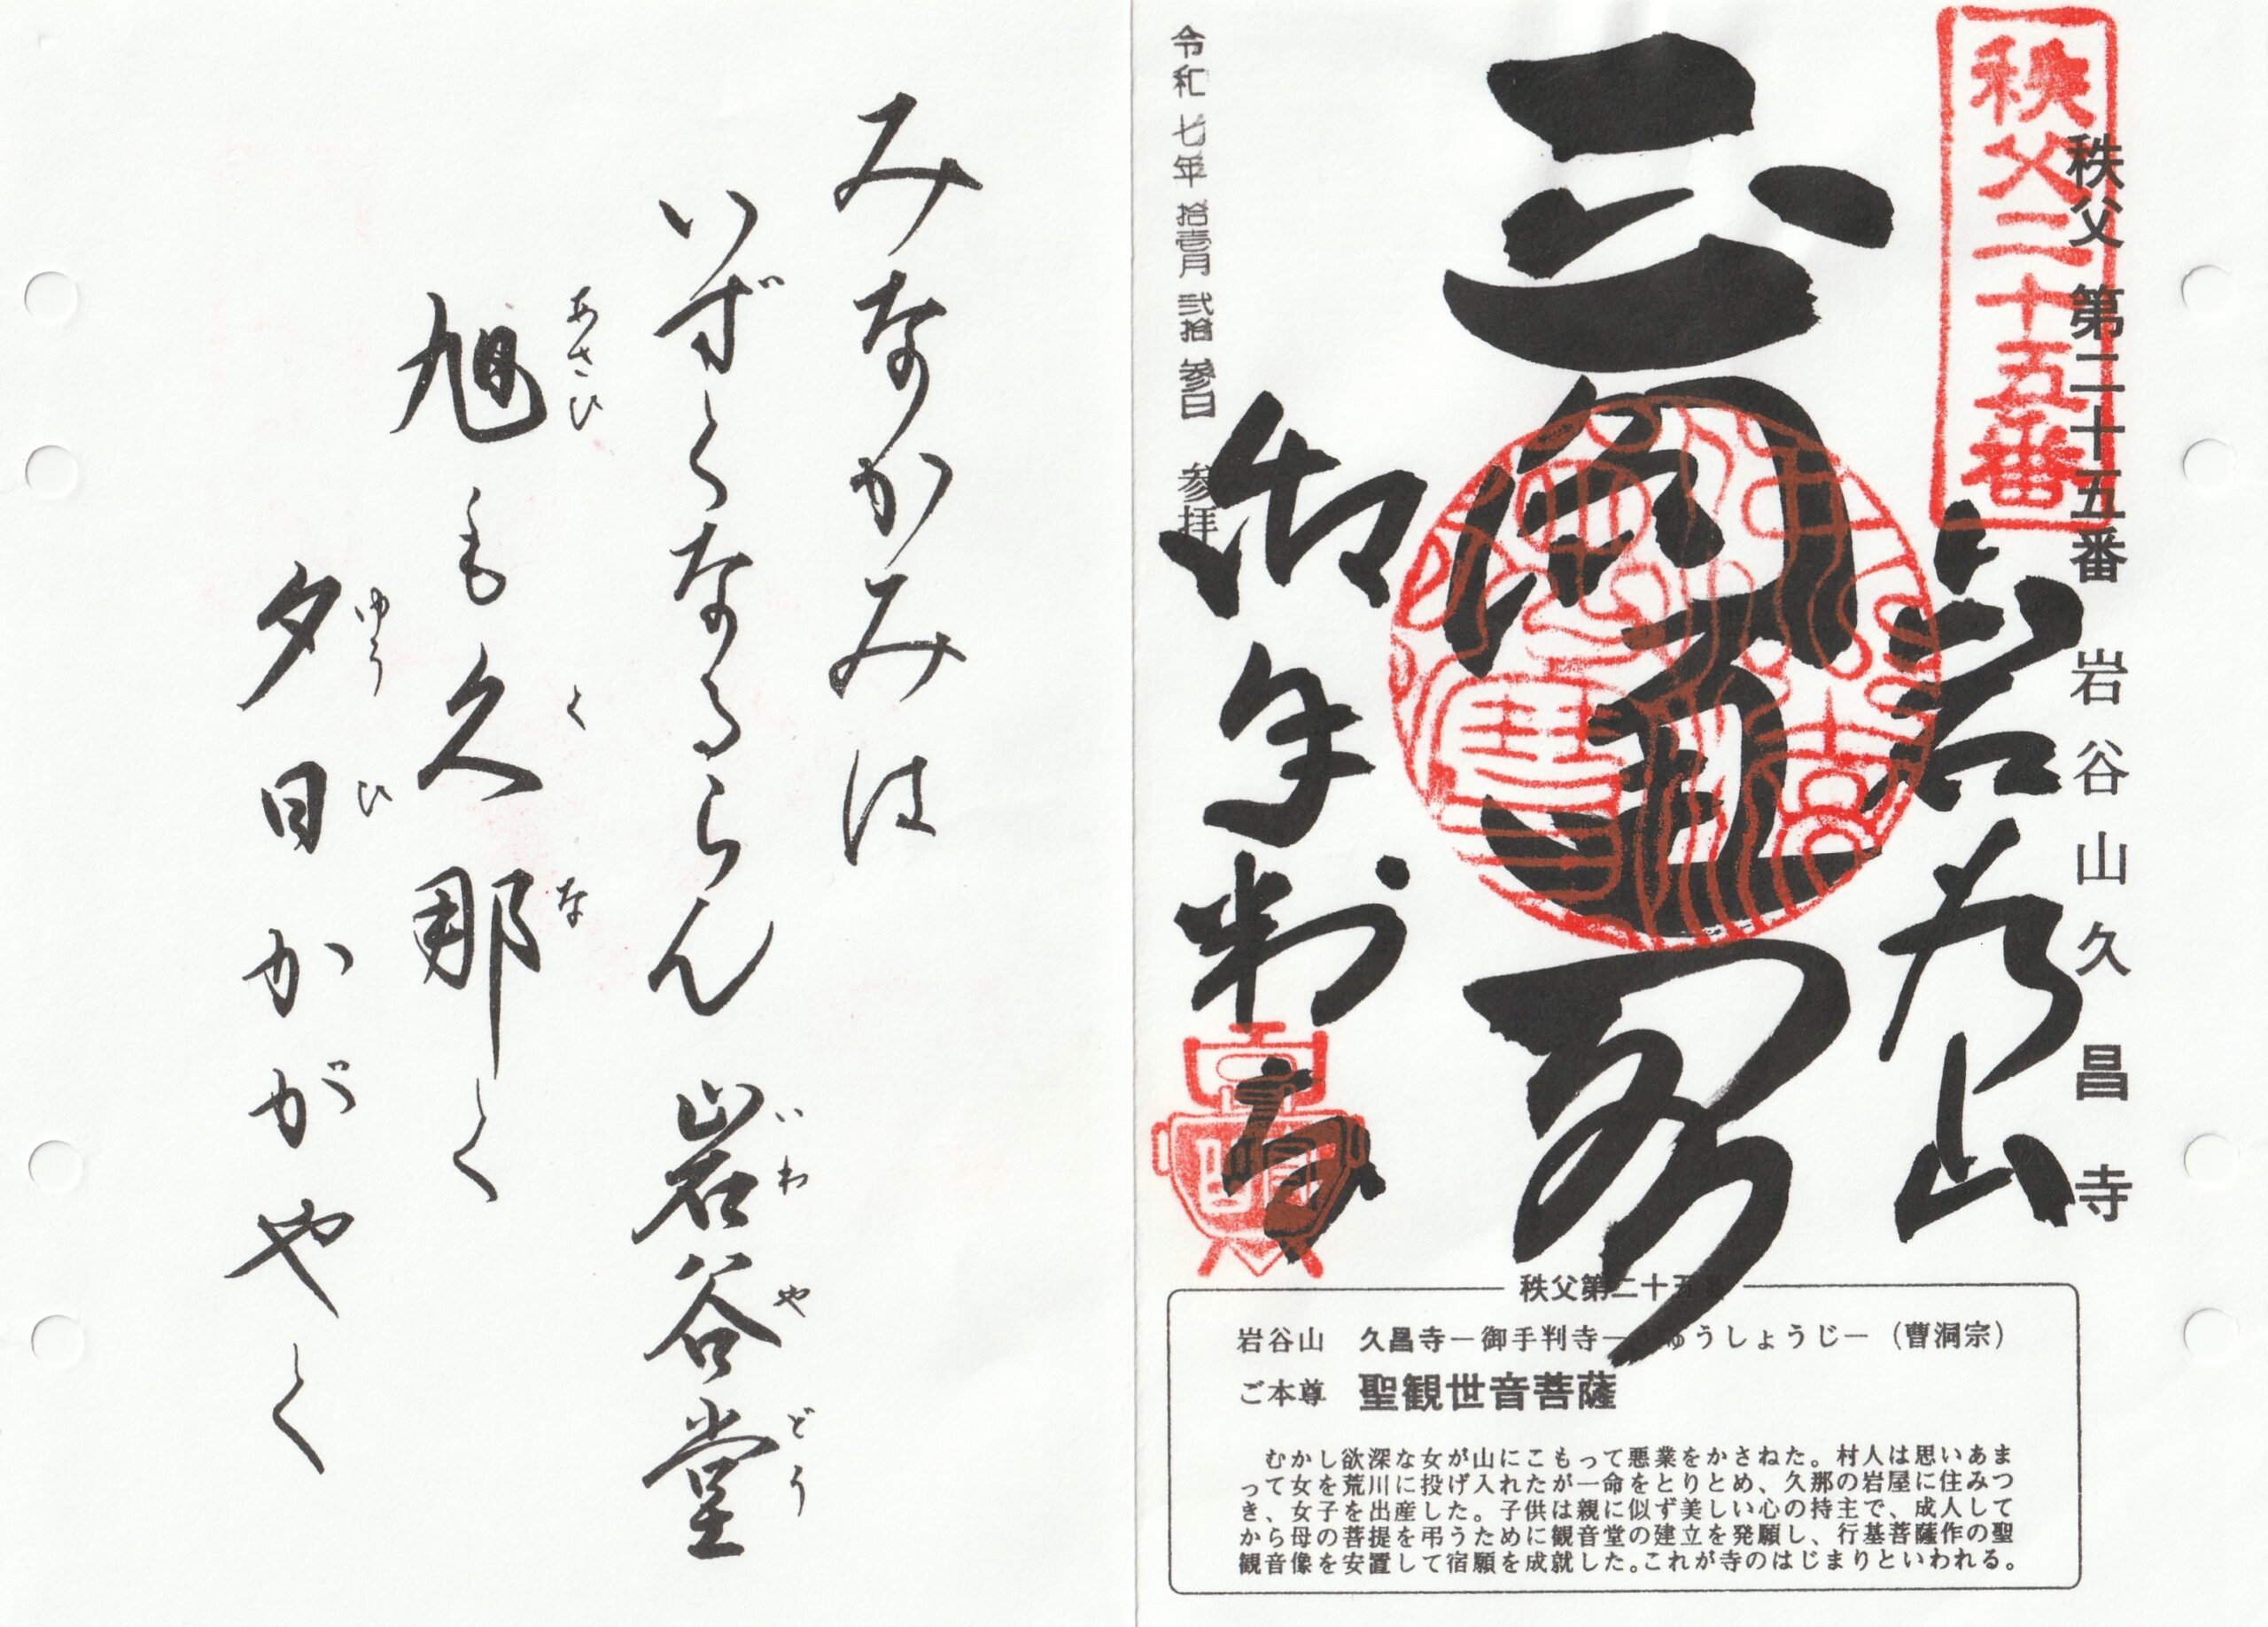 秩父二十五番
秩父 第二十五番 岩谷山久昌寺
岩谷山
御手判寺
令和七年拾壱月弐拾参日 参拝
秩父第二十五番
岩谷山 久昌寺―御手判寺―きゅうしょうじ―(曹洞宗)
ご本尊 聖観世音菩薩
むかし欲深な女が山にこもって悪業をかさねた。村人は思いあま
って女を荒川に投げ入れたが一命をとりとめ、久那の岩屋に住みつ
き、女子を出産した。子供は親に似ず美しい心の持主で、成人して
から母の菩提を弔うために観音堂の建立を発願し、行基菩薩作の聖
観音像を安置して宿願を成就した。これが寺のはじまりといわれる。
みなかみは
いずくなるらん 岩谷堂
いわやどう
旭も久那く
あさひ くな
夕日かがやく
ゆうひ